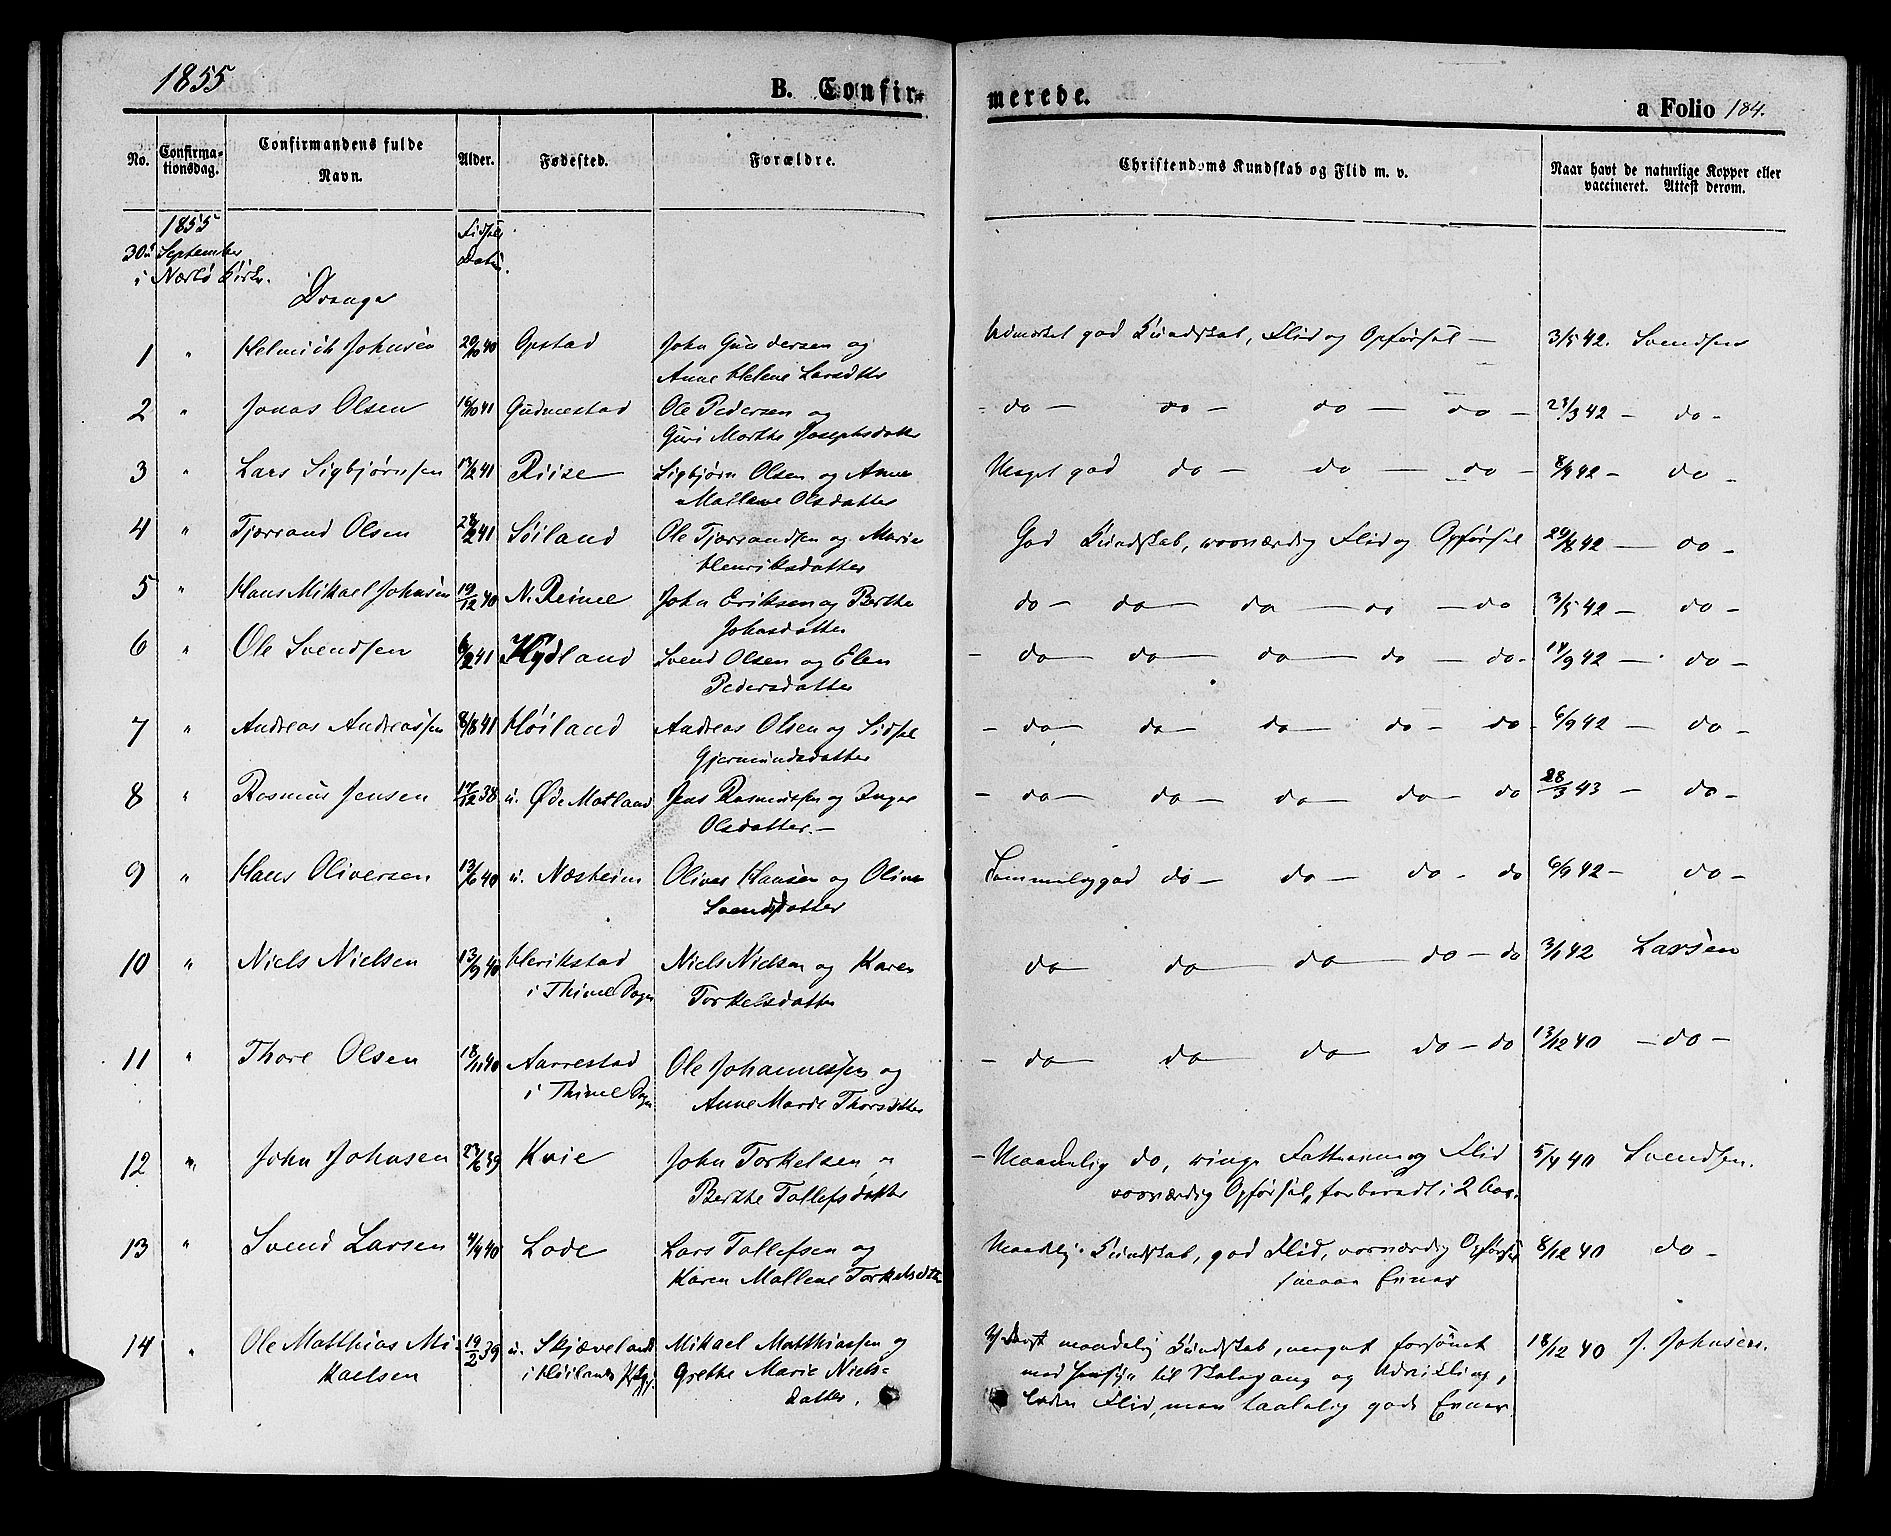 1855
B. Confir-
merede.
a Folio 184.
No.
Confirma-
tionsdag.
Confirmandens fulde
Navn.
Alder.
Fødested.
Forældre.
Christendoms Kundskab og Flid m. v.
Naar havt de naturlige Kopper eller
vaccineret. Attest derom.
1855
30te September
i Nærbø Kirke.
Fødsels
Datum.
Drenge
1 " Helmich Johnsen 20/10 40 Opstad John Gundersen og Udmærket god Kundskab, Flid og Opførsel — 3/5 42. Svendsen
Anne Helene Larsdtr
2 " Jonas Olsen 16/10 41 Gudmestad Ole Pedersen og - do — do — do — do — 23/3 42 — do -
Guri Marthe Josephsdatter
3 " Lars Sigbjørnsen 17/2 41 Riise Sigbjørn Olsen og Anne Meget god do — do — do - 8/9 42 - do -
Mallene Olsdatter
4 " Tjærand Olsen 28/2 41 Søiland Ole Tjærandsen og Marie God Kundskab, roesværdig Flid og Opførsel 29/8 42 — do -
Henriksdatter
5 " Hans Mikael Johnsen 19/12 40 N. Reime John Eriksen og Berthe do — do — do — do — do 3/5 42 — do -
Johnsdatter
6 " Ole Svendsen 6/2 41 Høyland Svend Olsen og Elen - do — do — do — do — do - 14/9 42 — do -
Pedersdatter
7 " Andreas Andreassen 8/8 41 Høiland Andreas Olsen og Sidsel - do — do — do — do — do - 6/9 42 — do -
Gjermundsdatter
8 " Rasmus Jensen 17/12 38 u. Øde Motland Jens Rasmussen og Inger - do — do — do — do — do 28/3 43 — do -
Olsdatter. —
9 " Hans Oliversen 13/6 40 u. Næsheim Oliver Hansen og Oline Temmelig god do — do — do - do 6/9 42 — do -
Svendsdatter
10 " Niels Nielsen 13/9 40 Herikstad Niels Nielsen og Karen do — do — do — do — do 3/1 42 Larsen
i Thime Sogn Torkelsdatter
11 " Thore Olsen 18/11 40 Aarrestad Ole Johannessen og - do — do — do — do — do 13/12 40 — do -
i Thime Sogn Anne Marde Thorsdatter
12 " John Johnsen 27/6 39 Kvie John Torkelsen " - Maadelig do, ringe Fatteevne og Flid 5/4 40 Svendsen.
Berthe Tollefsdatter roesværdig Opførsel, forberedt i 2 Aar.
13 " Svend Larsen 4/4 40 Lode Lars Tollefsen og Maadelig Kundskab, god Flid, roesværdig Opførsel 8/12 40 do -
Karen Mallene Torkelsdtr smaae Evner
14 " Ole Matthias Mi- 19/2 39 u. Skjæveland Mikael Matthiassen og Yderst maadelig Kundskab, meget forsømt 18/12 40 J. Johnsen.
kaelsen i Høilands Prgj. Grethe Marie Niels- med Hensyn til Skolegang og Udvikling,
datter. liden Flid, men taalelig gode Evner.